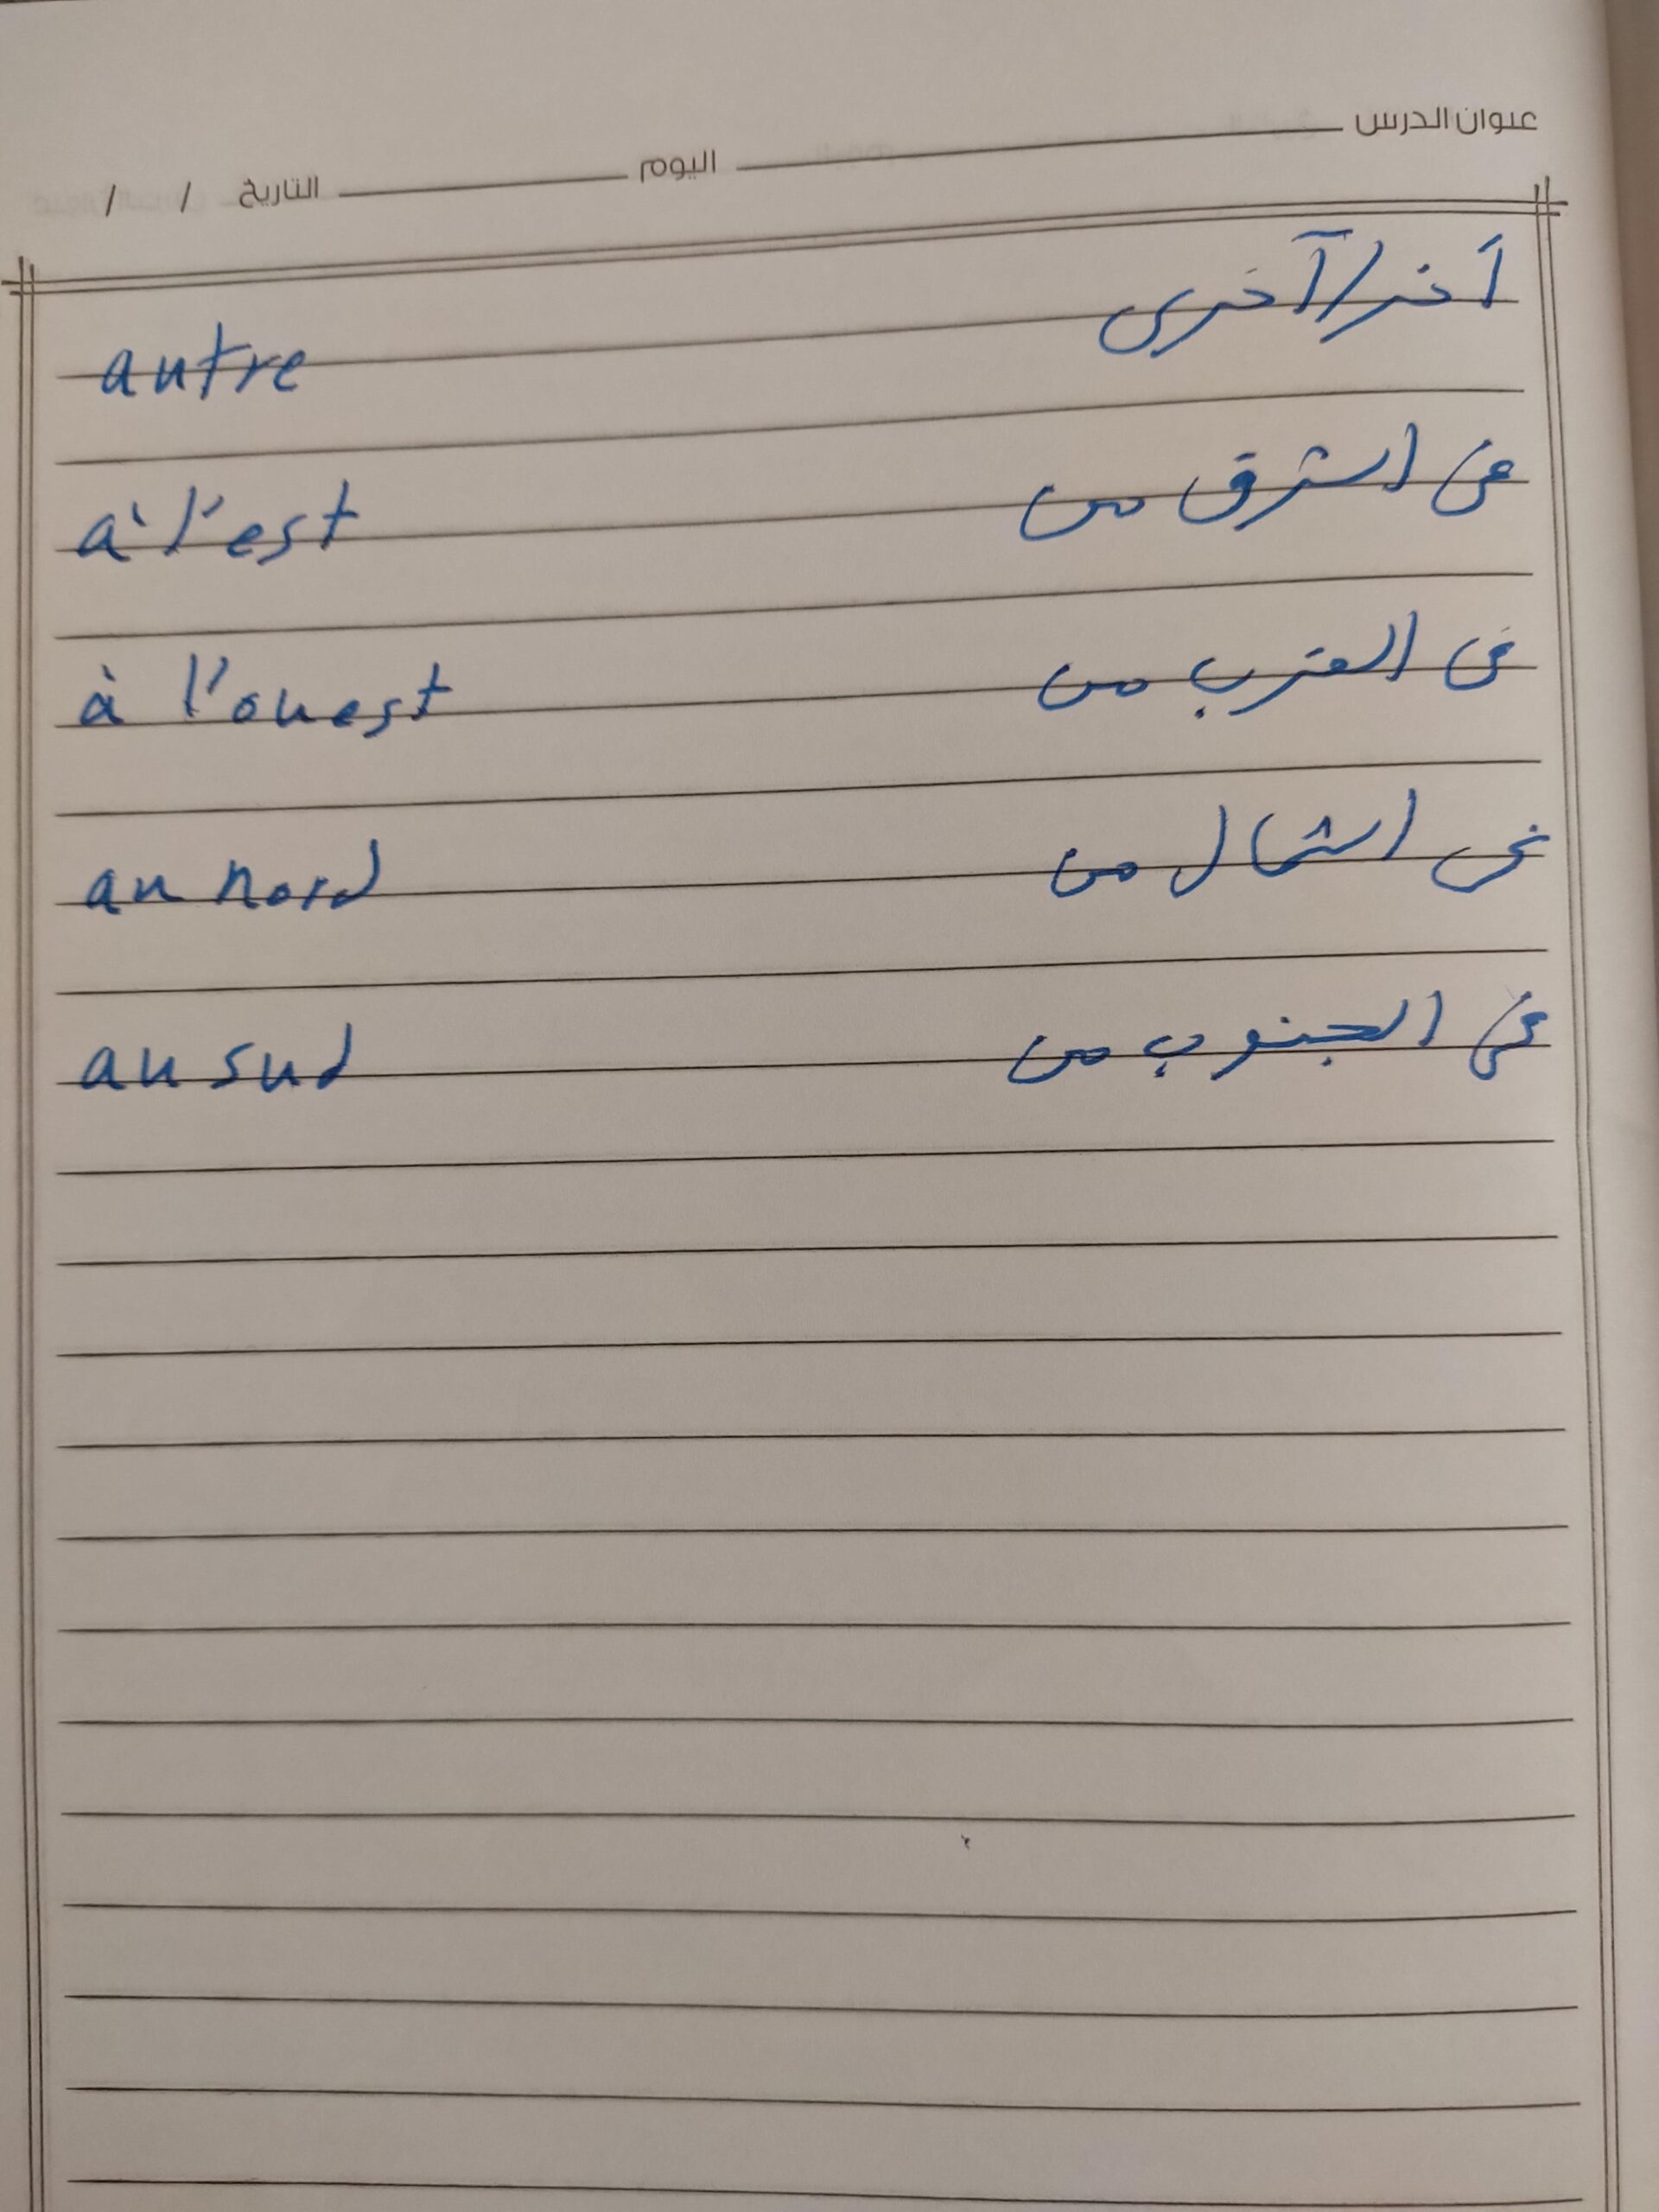 عنوان الدرس اليوم التاريخ / /
أخر/آخرى autre
فى الشرق من à l'est
فى الغرب من à l'ouest
فى الشمال من au nord
فى الجنوب من au sud